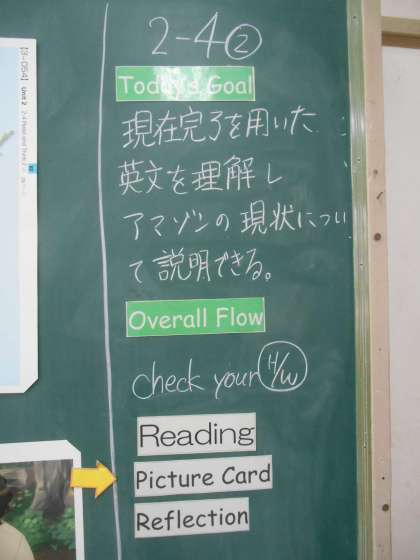 2-4②
Today's Goal
現在完了を用いた
英文を理解し
アマゾンの現状につい
て説明できる。
Overall Flow
check your H/W
Reading
Picture Card
Reflection
【3-054】 Unit 2